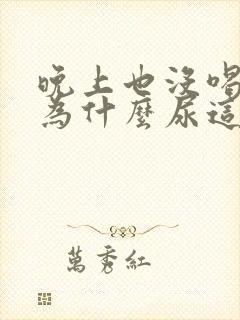 晚上也没喝
為什麼尿這
萬秀紅